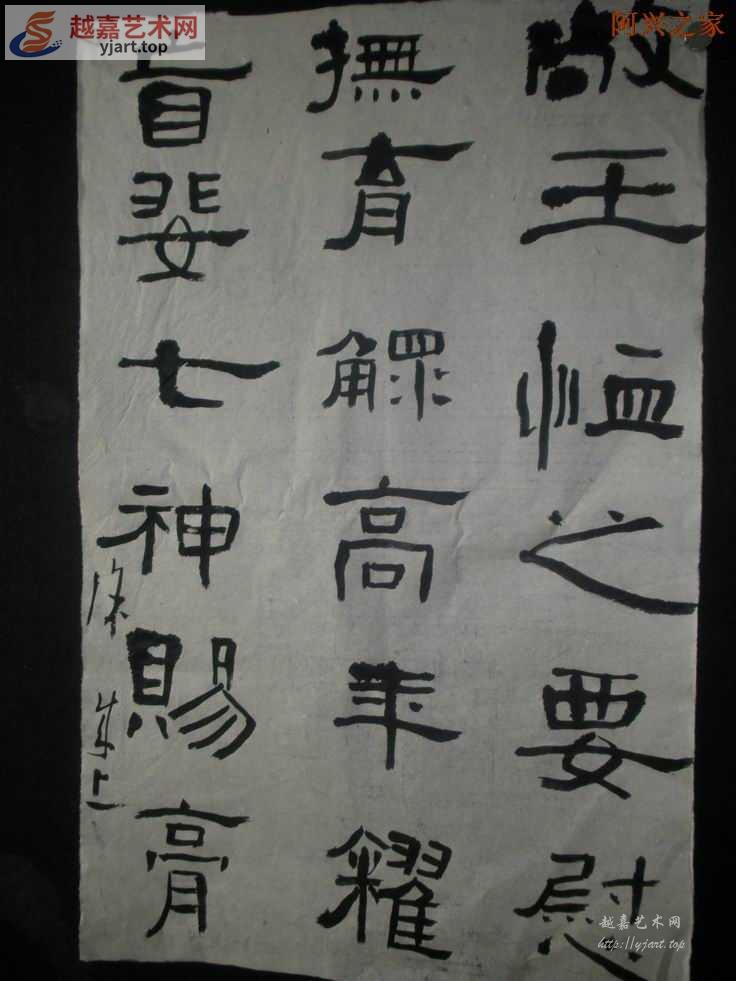 越嘉艺术网
yjart.top
阿兴之家
敞王恤之要慰
撫育鰥高年糴
盲婓七神賜膏
越嘉艺术网
http://yjart.top